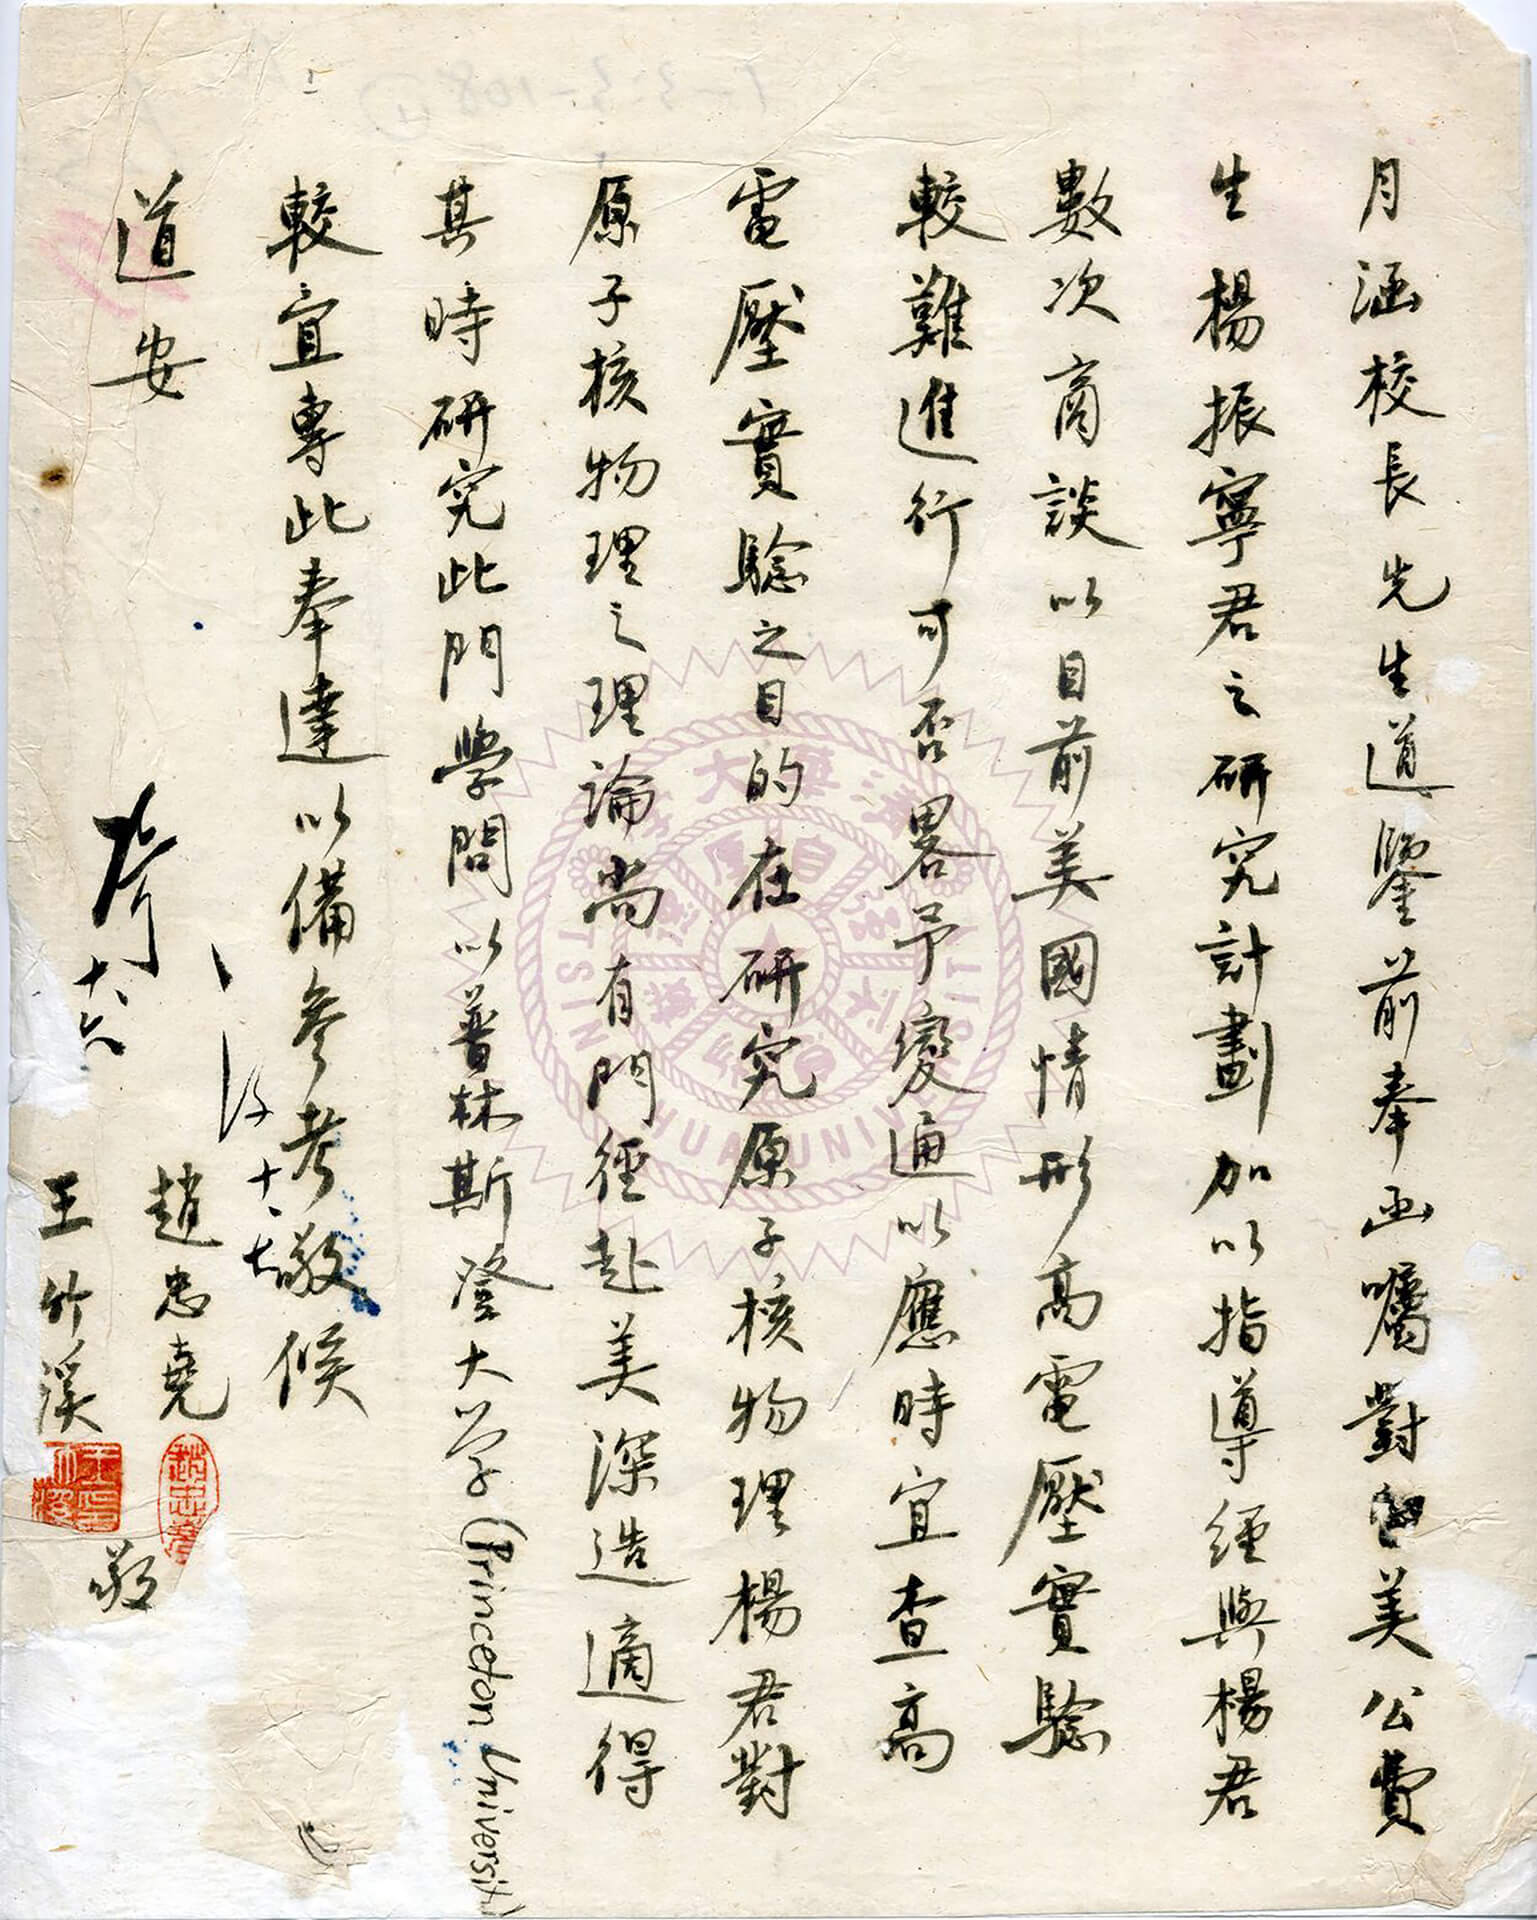 月涵校長先生道鑒前奉函囑對留美公費
生楊振寧君之研究計劃加以指導經與楊君
數次商談以目前美國情形高電壓實驗
較難進行可否畧予變通以應時宜查高
電壓實驗之目的在研究原子核物理楊君對
原子核物理之理論尚有門徑赴美深造適得
其時研究此門學問以普林斯登大学(Princeton University)
較宜專此奉達以備參考敬候
道安
趙忠堯
王竹溪
敬
十、七
十、六
趙忠堯
清華大學
自強不息
厚德載物
TSING HUA UNIVERSITY
1-3-3-108(4)